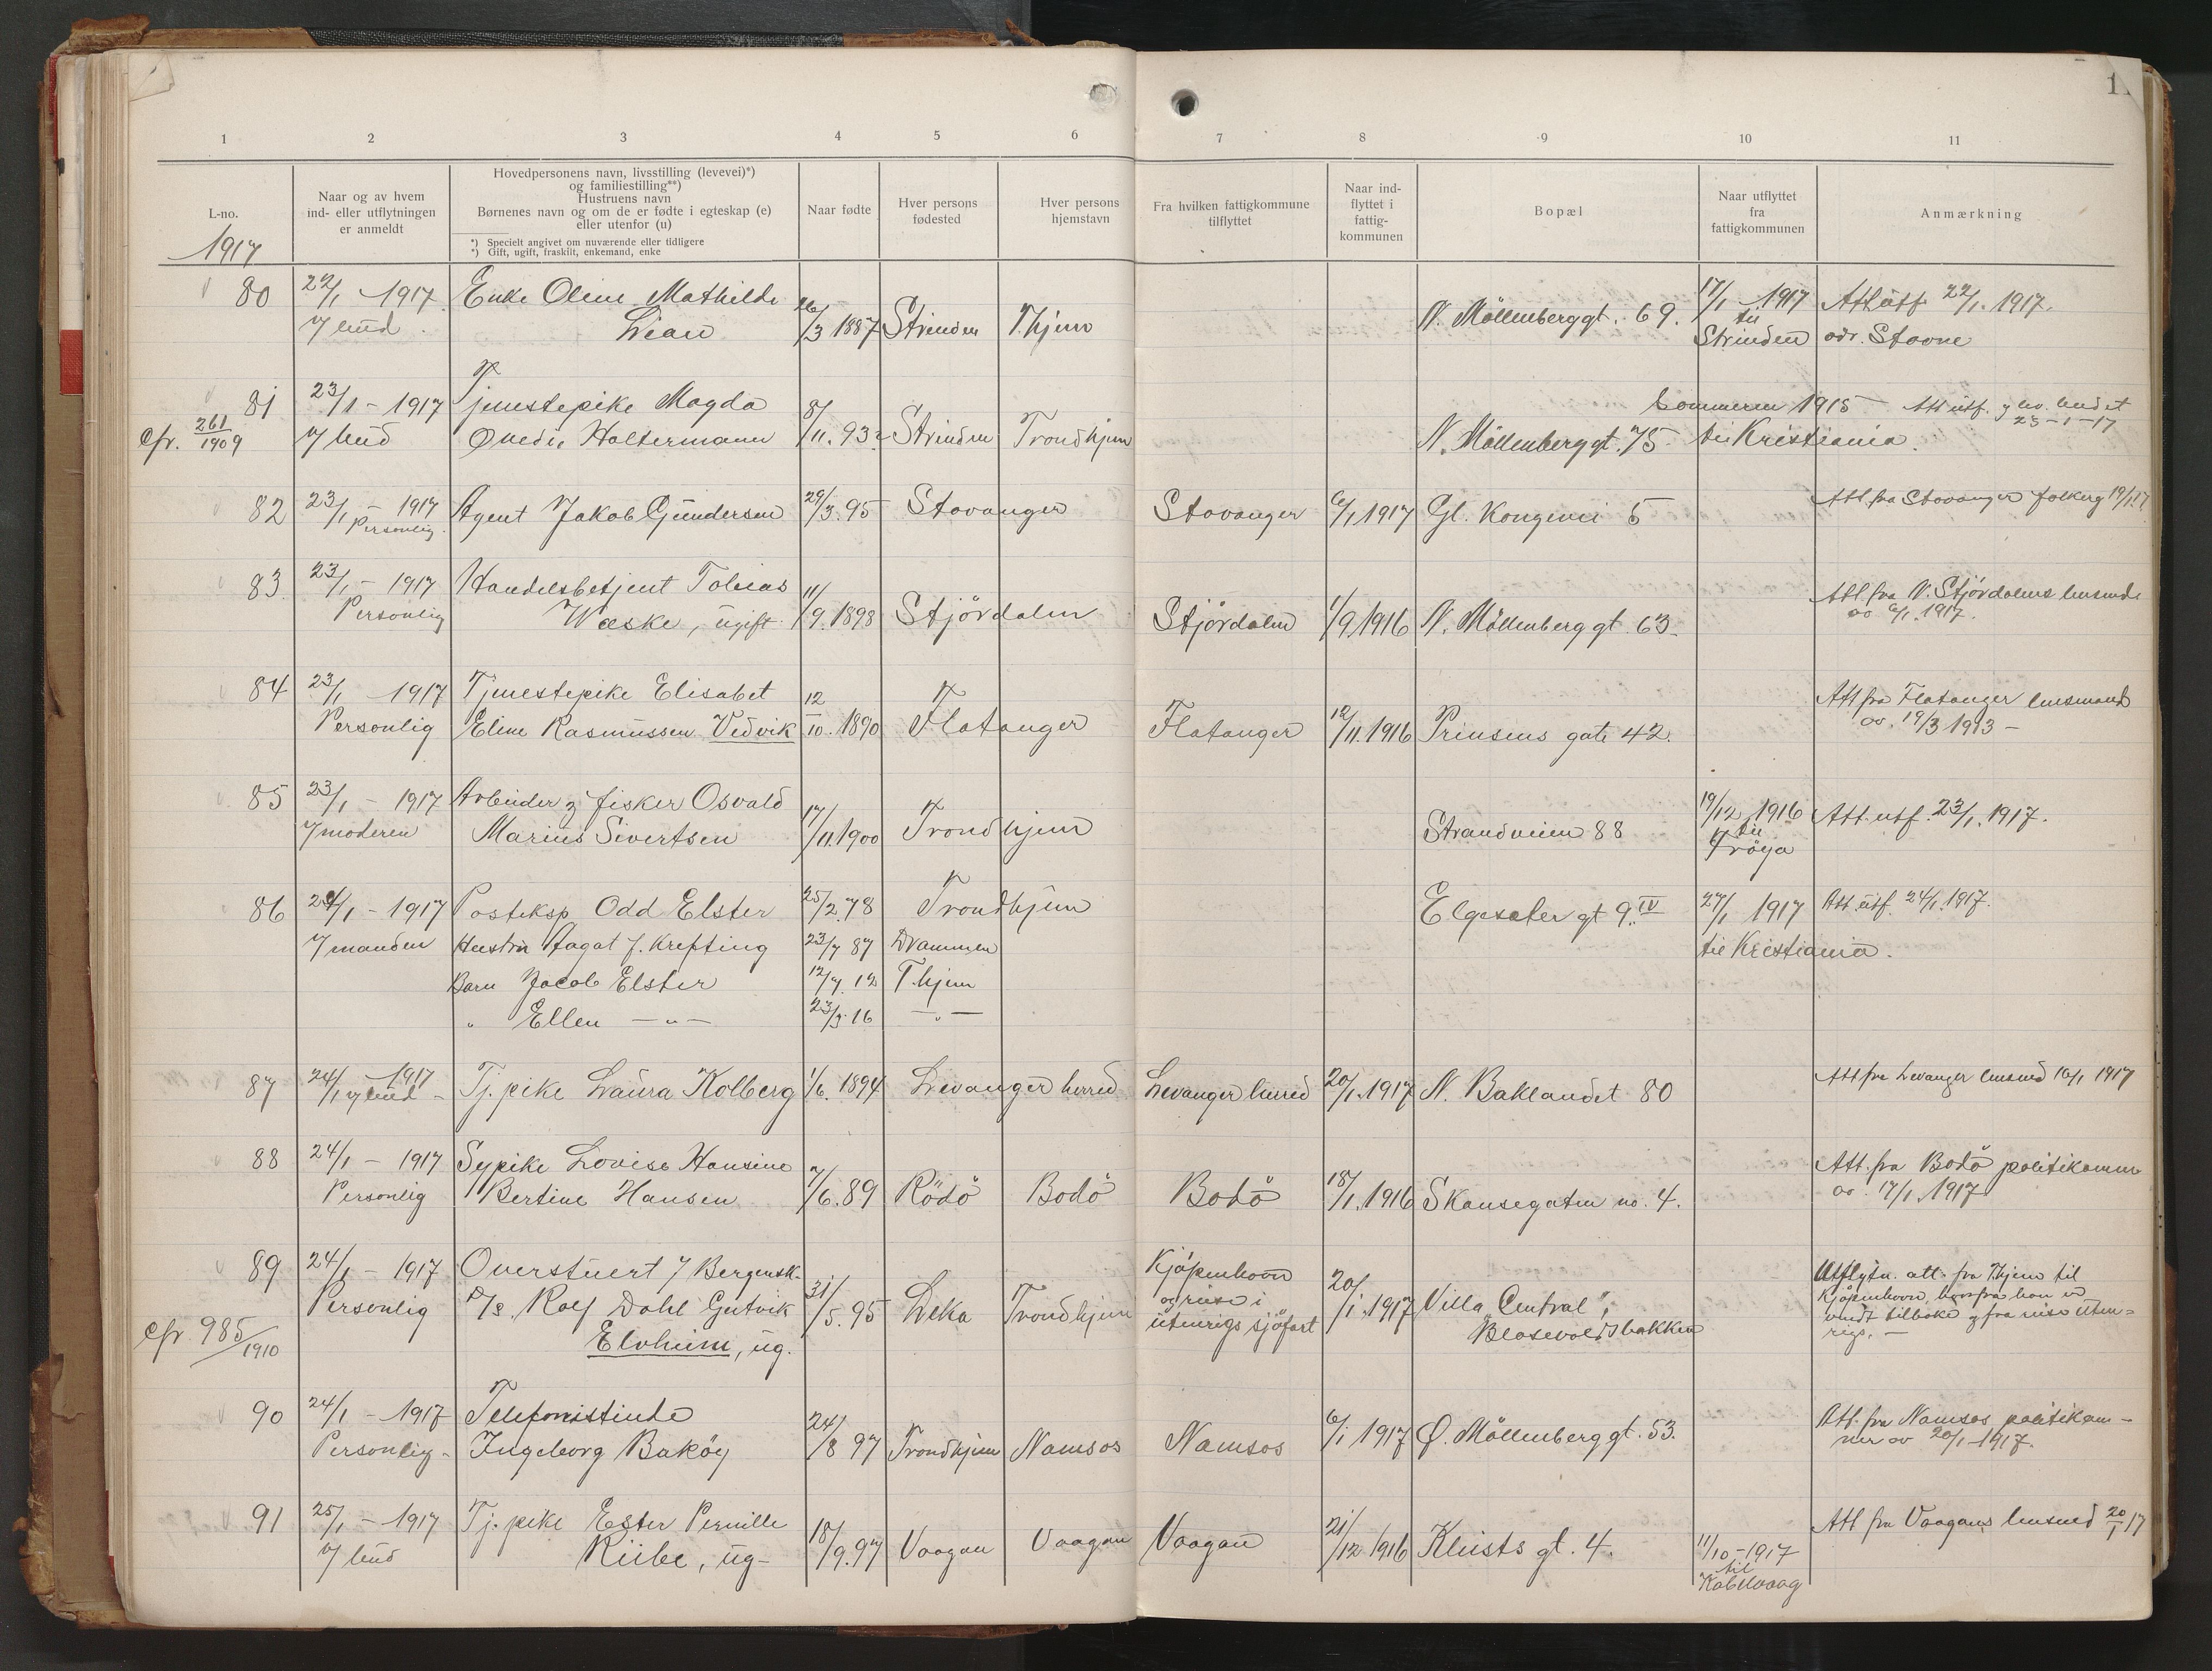 1 2 3 4 5 6 7 8 9 10 11
L-no.
1917
Naar og av hvem
ind- eller utflytningen
er anmeldt
Hovedpersonens navn, livsstilling (levevei)*)
og familiestilling**)
Hustruens navn
Børnenes navn og om de er fødte i egteskap (e)
eller utenfor (u)
*) Specielt angivet om nuværende eller tidligere
*) Gift, ugift, fraskilt, enkemand, enke
Naar fødte
Hver persons
fødested
Hver persons
hjemstavn
Fra hvilken fattigkommune
tilflyttet
Naar ind-
flyttet i
fattig-
kommunen
Bopæl
Naar utflyttet
fra
fattigkommunen
Anmærkning
80 22/1 - 1917 Enke Oline Mathilde 17/1 - 1917 Att utf. 22/1. 1917.
v/ bud Lian 26/3 1887 Strinden T.hjem N. Möllenberggt. 69. til
Strinden adr. Stavne
81 23/1 - 1917 Tjenestepike Magda Sommeren 1915 Att utf. budet
23-1-17
cfr. 261/1909 v/ bud Holtermann 8/11. 93 Strinden Trondhjem N. Möllenberggt. 75 til Kristiania.
82 23/1 - 1917 Agent Jakob Gundersen 29/3. 95 Stavanger Stavanger 6/1 1917 Gl. Kongevei 5 Att. fra Stavanger folkereg 19/1 17
Personlig
83 23/1 - 1917 Handelsbetjent Tobias Att. fra N. Stjördalens lensmd
Personlig Wæske, ugift 11/9. 1898 Stjördalen Stjördalen 1/9 1916 N. Möllenberg gt. 63. av 6/1. 1917.
84 23/1 1917 Tjenestepike Elisabet Att fra Flatanger lensmand
Personlig Eline Rasmussen Vedvik 12/10. 1890 Flatanger Flatanger 12/11. 1916 Prinsens gate 42. av. 19/3 1913 -
85 23/1 - 1917 Arbeider & fisker Osvald 19/12 1916 Att. utf. 23/1. 1917.
v/ moderen Marius Sivertsen 17/11. 1900 Trondhjem Strandveien 88 til
Fröya
86 24/1 - 1917 Posteksp. Odd Elster 25/2. 78 Trondhjem Elgeseter gt 9. IV 27/1 1917 Att. utf. 24/1. 1917.
v/ manden Hustru Aagot f. Krefting 23/7 87 Drammen til Kristiania.
Barn Jacob Elster 12/7. 12 T.hjem
" Ellen - " - 23/3 16 - " -
87 24/1 - 1917 v/ bud Tj. pike Laura Kolberg 1/6. 1894 Levanger herred Levanger herred 20/1. 1917 N. Baklandet 80 Att fra Levanger lensmd 16/1 1917
88 24/1 - 1917 Sypike Lovise Hansine Att. fra Bodö politikamm
Personlig Bertine Hansen 7/6. 89 Rödö Bodö Bodö 18/1. 1916 Skansegaten no. 4. av. 17/1. 1917
89 24/1 - 1917 Overstuert v/ Bergensk. Kjöpenhavn Utflytn. att. fra T.hjem til
Personlig D/s. Rolf Dahl Gutvik 31/5. 95 Leka Trondhjem og reise i 20/1. 1917 Villa "Central", Kjöpenhavn, hvorfra han er
cfr. 985/1910 Elvheim, ug. utenrigs sjöfart Blæsevoldsbakken vendt tilbake & fra reise uten-
rigs. -
90 24/1 - 1917 Telefonistinde Att. fra Namsos politikam-
Personlig - Ingeborg Baköy 24/8 97 Trondhjem Namsos Namsos 6/1 1917 Ø. Möllenberg gt. 53. mer av 20/1 - 1917.
91 25/1 - 1917 Tj. pike Ester Pernille Att fra Vaagans lensmd 20/1 17
v/ bud Riibe, ug - 18/9. 97 Vaagan Vaagan Vaagan 21/12 1916 Kleists gt. 4. 11/10 - 1917
til
Kabelvaag